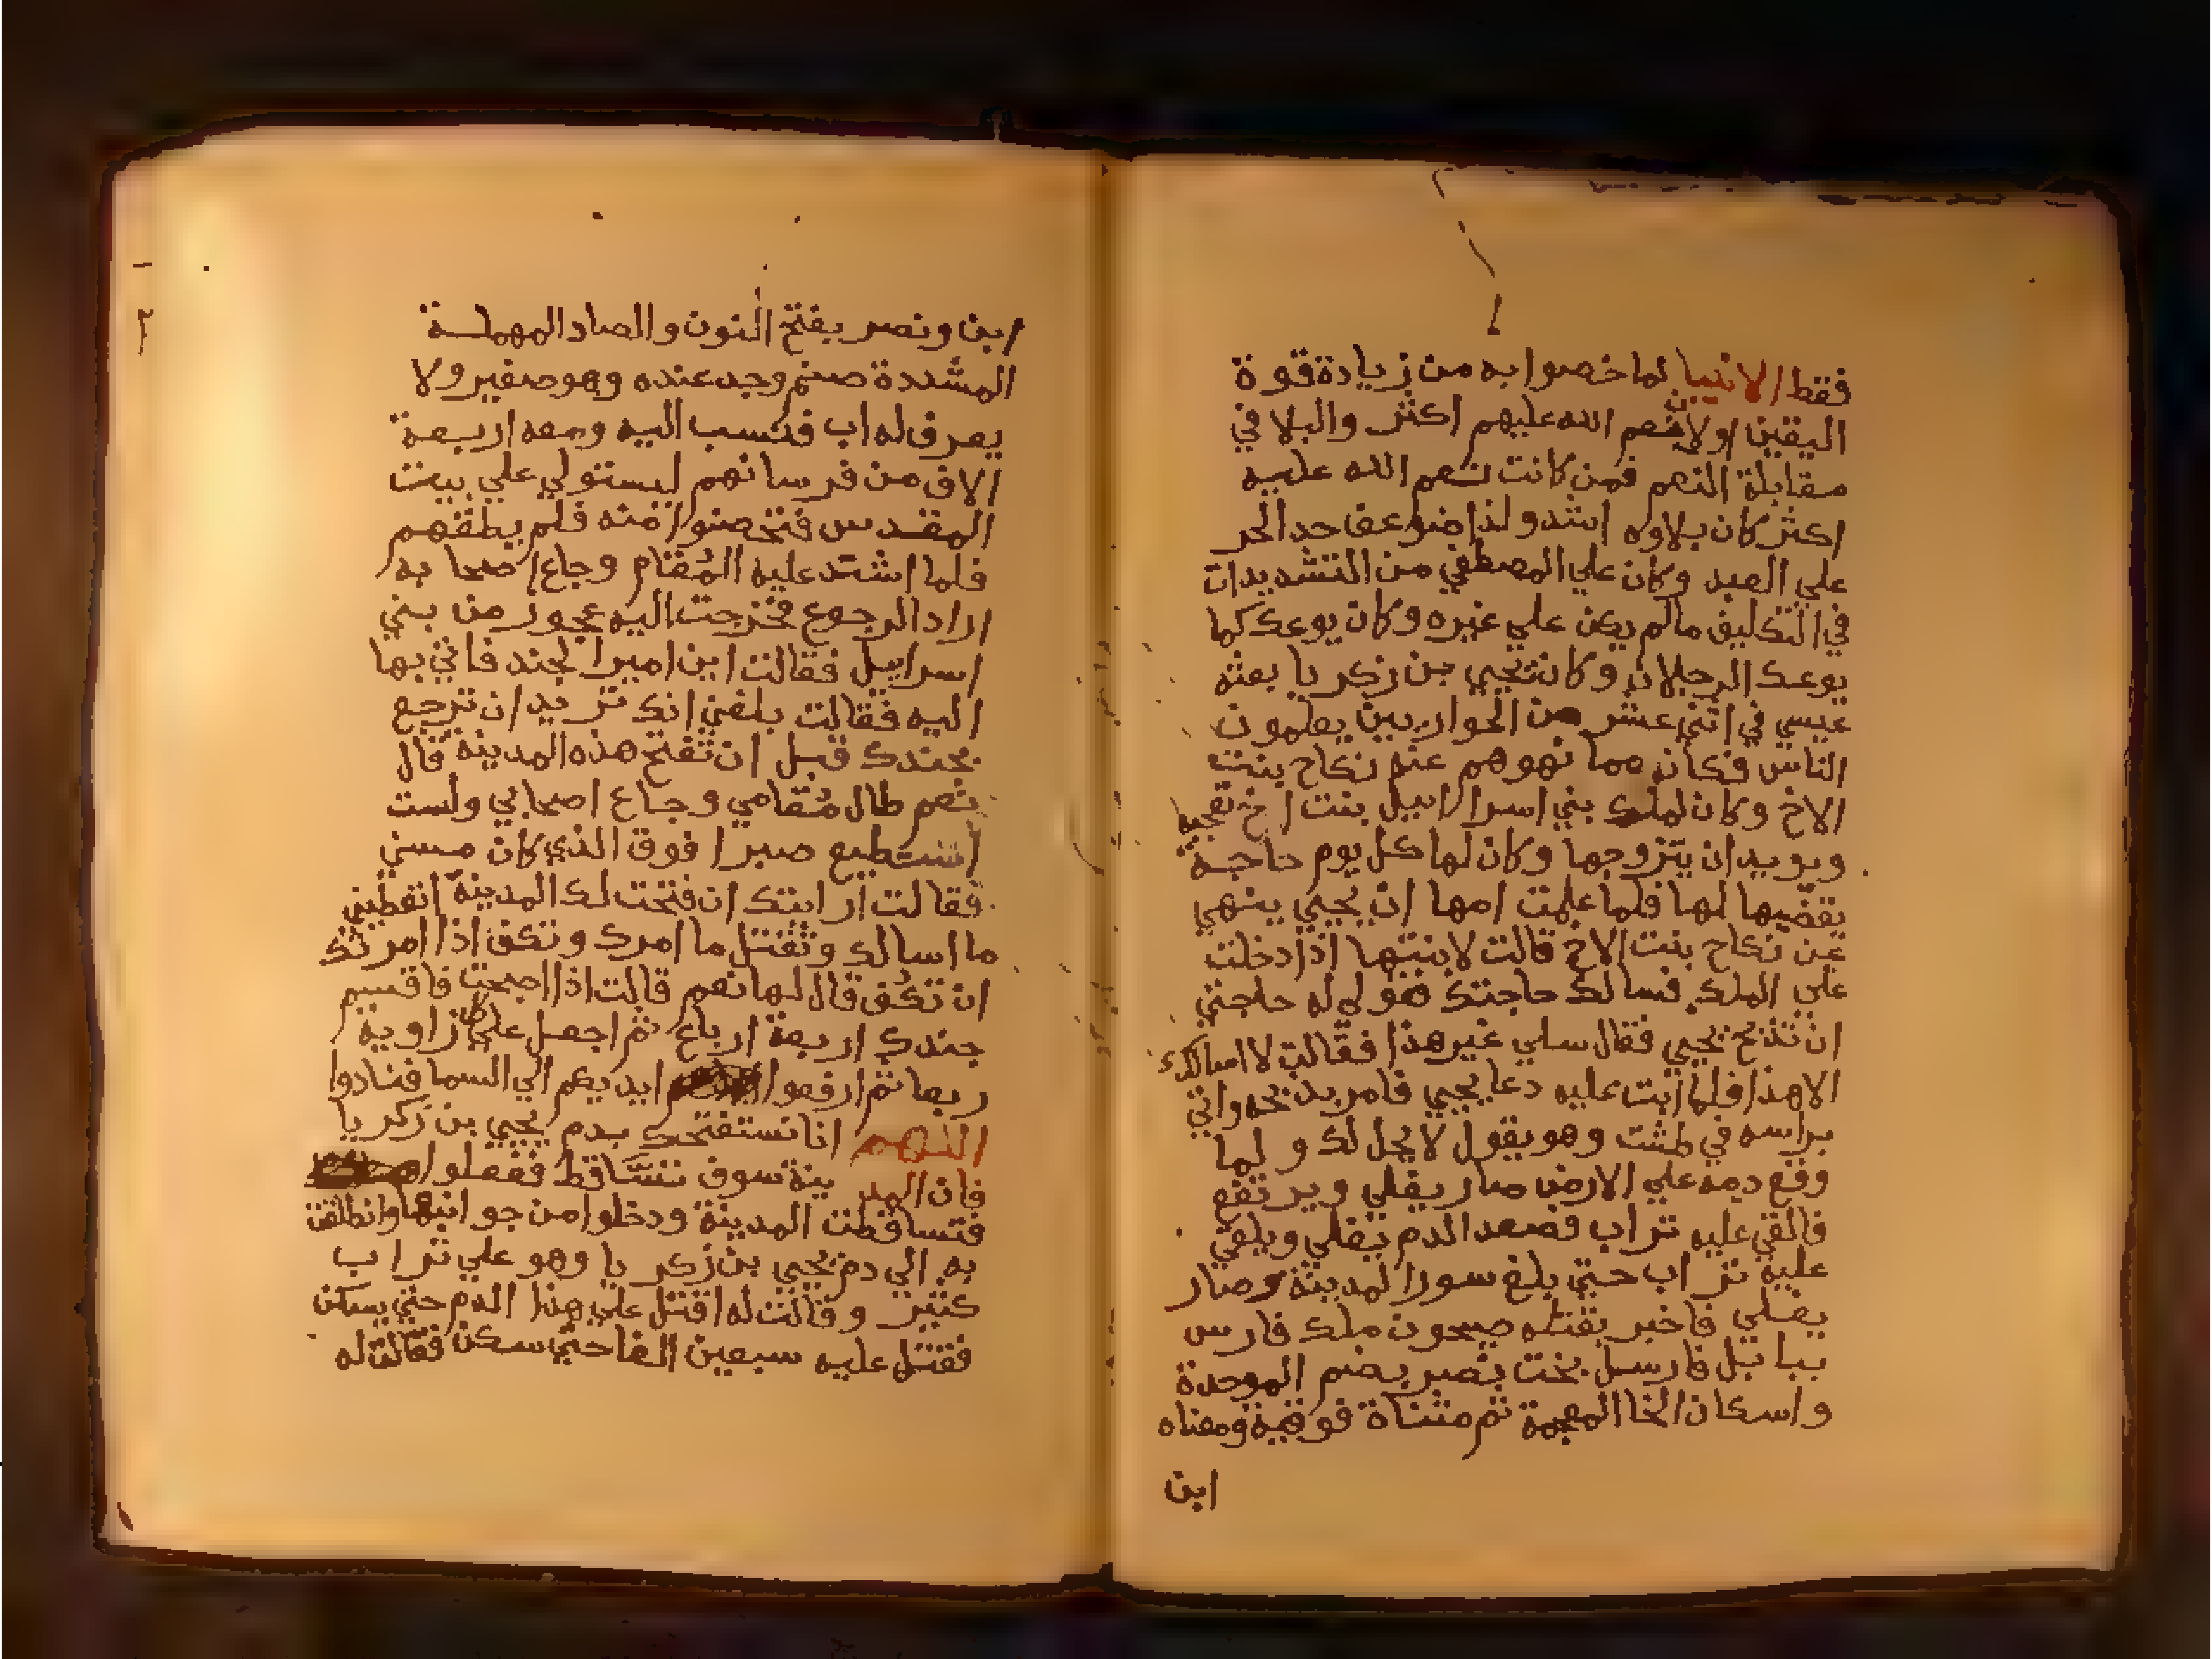 فقط الانبيا لما خصوا به من زيادة قوة
اليقين اولان نعم الله عليهم اكثر والبلا في
مقابلة النعم فمن كانت نعم الله عليه
اكثر كان بلاوه اشد ولذا ضوعف حد الحر
علي العبد وكان علي المصطفي من التشديدات
في التكليف مالم يكن علي غيره وكان يوعك كما
يوعك الرجلان وكان يحيي بن زكريا بعثه
عيسي في اثني عشر من الحواريين يعلمون
الناس فكان مما نهوهم عنه نكاح بنت
الاخ وكان لملك بني اسراايل بنت اخ تعجبه
ويريد ان يتزوجها وكان لها كل يوم حاجة
يقضيها لها فلما علمت امها ان يحيي ينهي
عن نكاح بنت الاخ قالت لابنتها اذا دخلت
علي الملك فسالك حاجتك فقولي له حاجتي
ان تذبح يحيي فقال سلي غير هذا فقالت لا اسالك
الا هذا فلما ابت عليه دعا يحيي فامر بذبحه واتي
براسه في طشت وهو يقول لا يحل لك ولما
وقع دمه علي الارض صار يغلي ويرتفع
فالقي عليه تراب فصعد الدم يغلي ويلقي
عليه تراب حتي بلغ سور المدينة وصار
يغلي فاخبر بقتله صيحون ملك فارس
ببابل فارسل بخت نصر بضم الموحدة
واسكان الخا المعجمة ثم مثناة فوقية ومعناه
ابن
٢
ابن ونصر بفتح النون والصاد المهملة
المشددة صنم وجد عنده وهو صغير ولا
يعرف له اب فنسب اليه ومعه اربعة
الاف من فرسانهم ليستولي علي بيت
المقدس فتحصنوا منه فلم يطقهم
فلما اشتد عليه المُقام وجاع اصحابه
اراد الرجوع فخرجت اليه عجوز من بني
اسراييل فقالت اين امير الجند فاتي بها
اليه فقالت بلغني انك تريد ان ترجع
بجندك قبل ان تفتح هذه المدينة قال
نعم طال مُقامي وجاع اصحابي ولست
استطيع صبرا فوق الذي كان مسني
فقالت ارايتك ان فتحت لك المدينة اتعطيني
ما اسالك وتقتل ما امرك وتكف اذا امرتك
ان تكُف قال لها نعم قالت اذا اصبحت فاقسم
جندك اربعة ارباع ثم اجعل علي كل زاوية
ربعا ثم ارفعوا ايديكم الي السما فنادوا
اللهم انا نستفتحك بدم يحيي بن زكريا
فان المدينة سوف تتساقط ففعلوا
فتساقطت المدينة ودخلوا من جوانبها وانطلقت
به الي دم يحيي بن زكريا وهو علي تراب
كثير وقالت له اقتل علي هذا الدم حتي يسكن
فقتل عليه سبعين الفا حتي سكن فقالت له